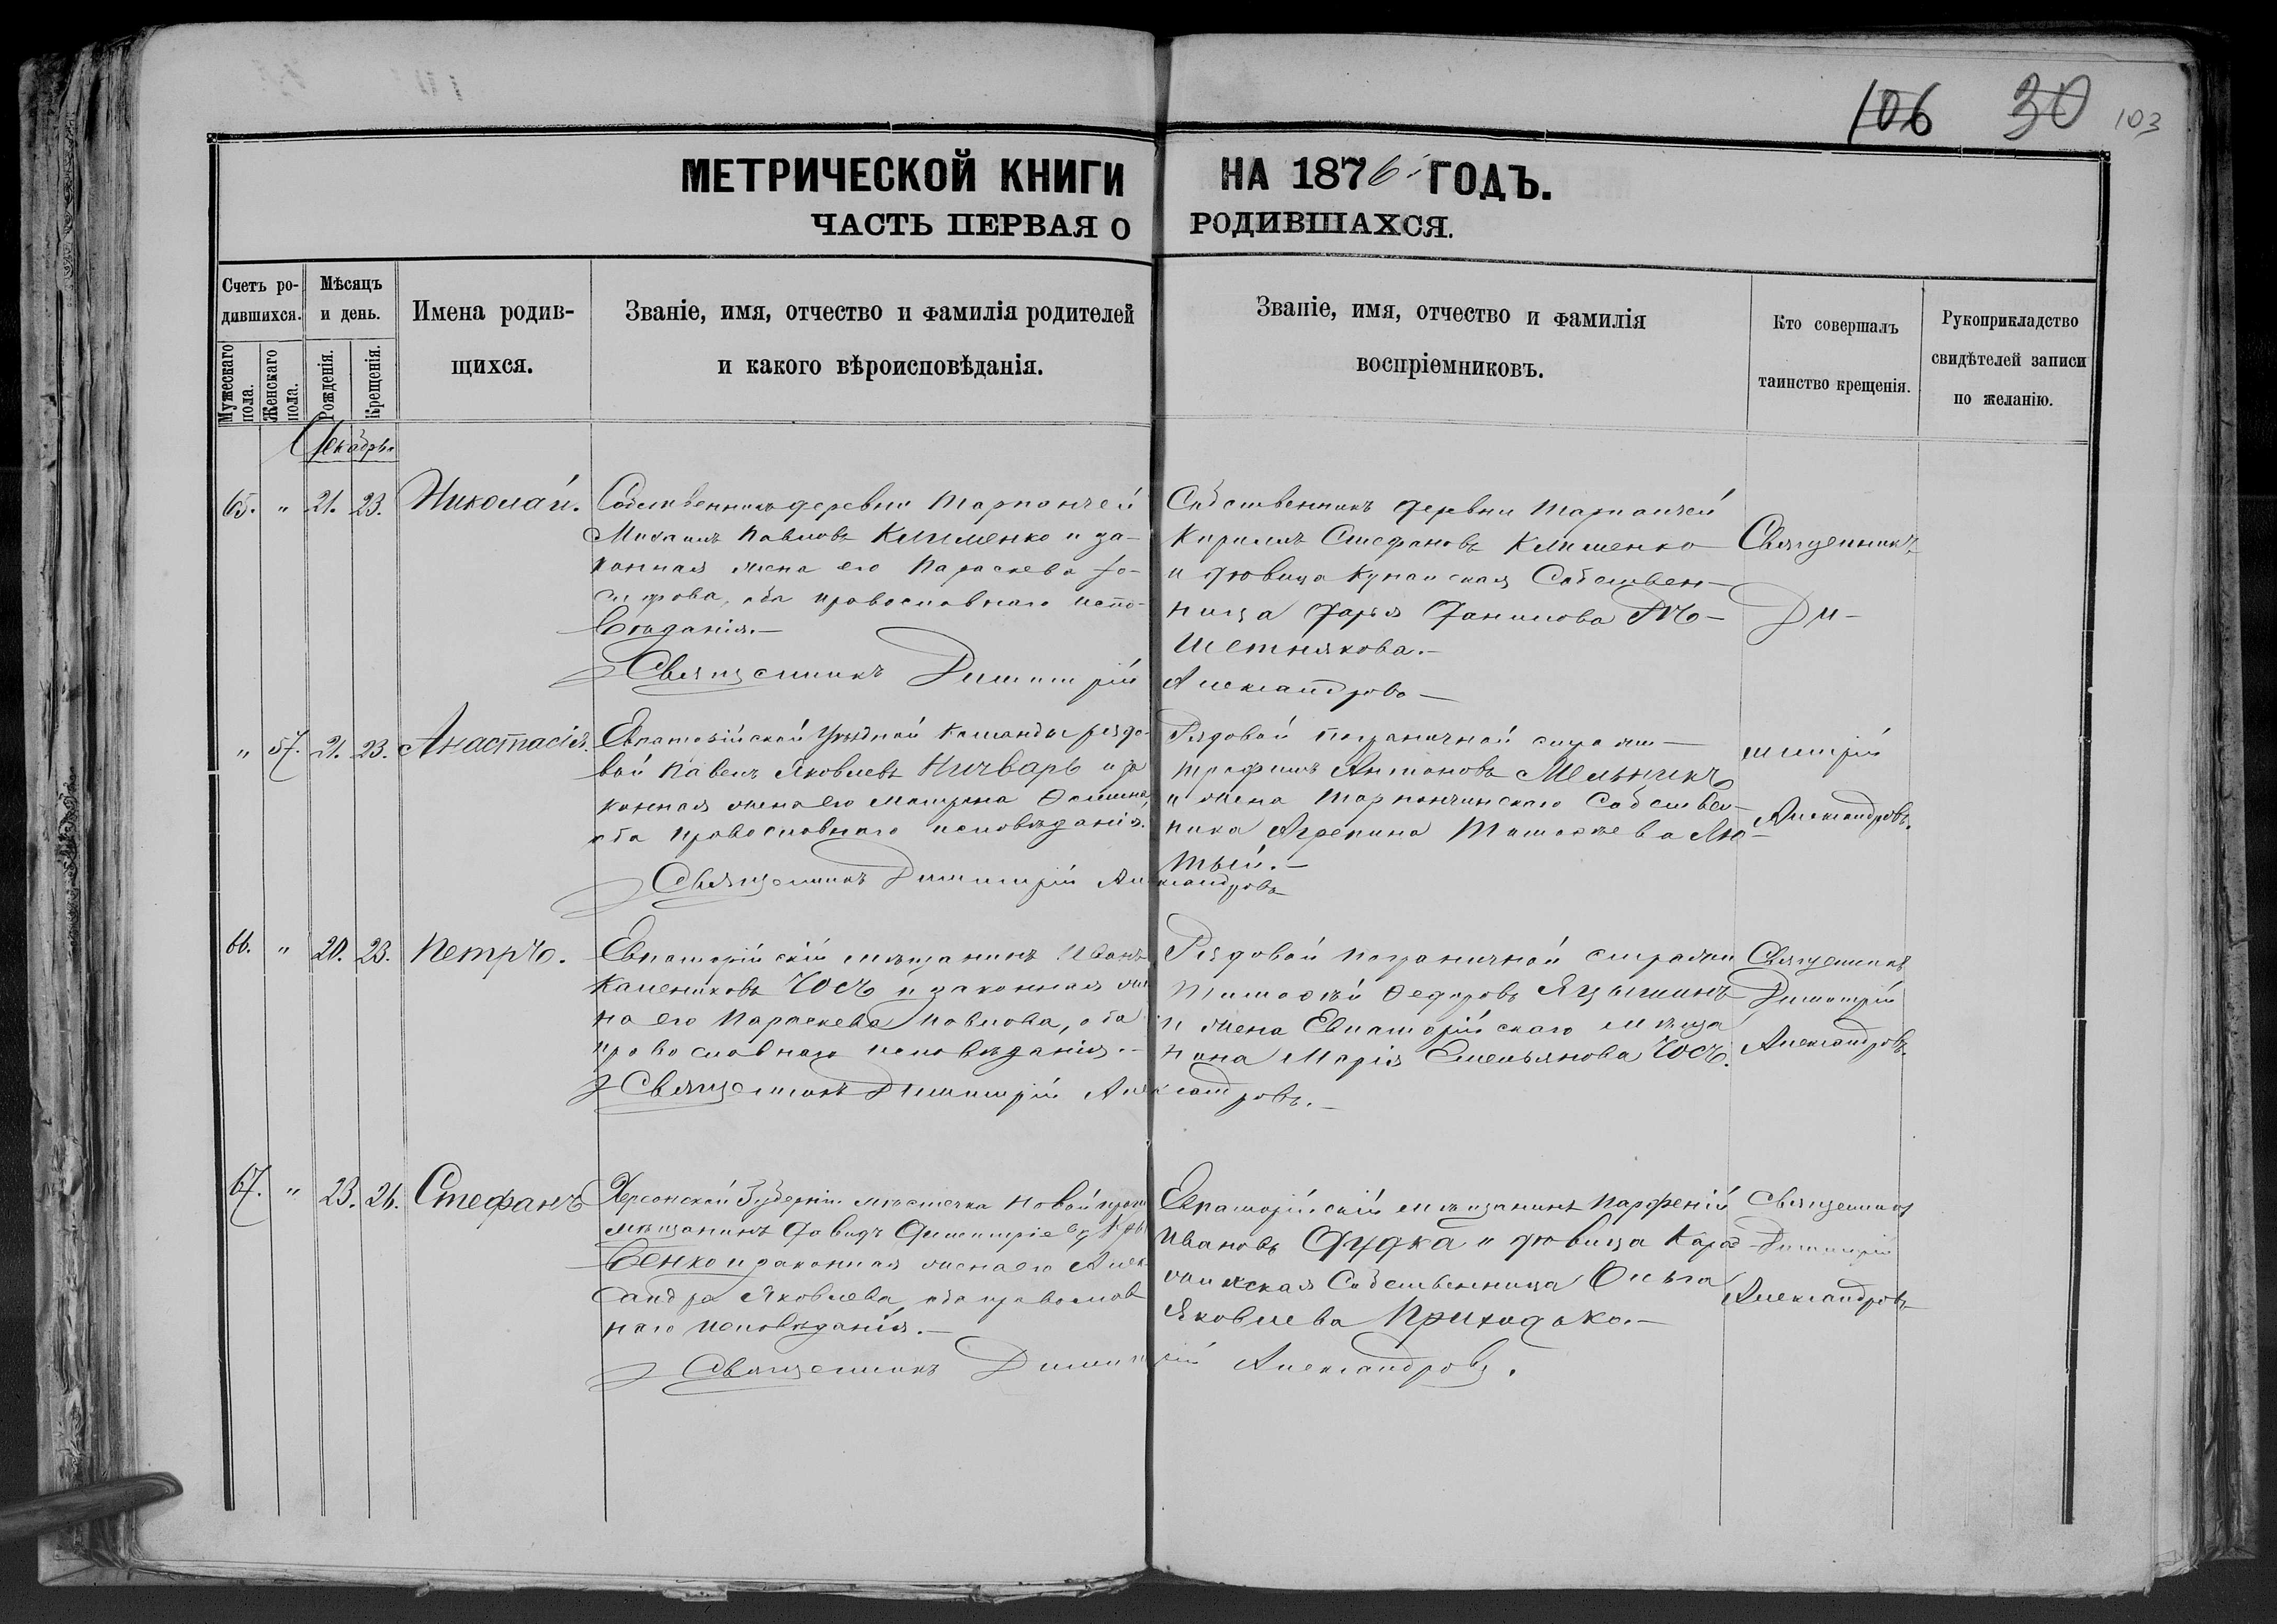 106 30 103
МЕТРИЧЕСКОЙ КНИГИ НА 1876 ГОДЪ.
ЧАСТЬ ПЕРВАЯ О РОДИВШАХСЯ.
Счетъ ро-
дившихся.
Мужескаго пола.
Женскаго пола.
Мѣсяцъ
и день.
Рожденія.
Крещенія.
Имена родив-
щихся.
Званіе, имя, отчество и фамилія родителей
и какого вѣроисповѣданія.
Званіе, имя, отчество и фамилія
воспріемниковъ.
Кто совершалъ
таинство крещенія.
Рукоприкладство
свидѣтелей записи
по желанію.
Декабрь
65. " 21. 23. Николай.
Собственникъ деревни Тарпанчей
Михаилъ Павловъ Клименко и за-
конная жена его Параскева
оба православнаго испо-
вѣданія.
Священникъ Димитрій Александровъ
Собственникъ деревни Тарпанчей
Кирилъ Стефановъ Клименко
и дѣвица Собствен-
ница Дарья Данилова
Священникъ
Ди-
" 57. 21. 23. Анастасія.
Евпаторійской Уѣздной Команды рядо-
вой Павелъ Яковлевъ Ничварь и за
конная жена его Матрона Ѳомина,
оба православнаго исповѣданія.
Священникъ Димитрій Александровъ
Рядовой пограничной стражи
Трофимъ Антоновъ Мельникъ
и жена Тарпанчинскаго Собствен-
ника Агрепина Тимоѳеева Лю-
тый.
митрій
Александровъ.
66. " 20. 23. Петръ.
Евпаторійскій мѣщанинъ Иванъ
Калениковъ Юсь и законная же
на его Параскева Павлова, оба
православнаго исповѣданія.
Священникъ Димитрій Александровъ.
Рядовой пограничной стражи
Тимоѳей Ѳедоровъ Яцышинъ
и жена Евпаторійскаго мѣща
нина Марія Емельянова Юсь.
Священникъ
Димитрій
Александровъ
67. " 23. 26. Стефанъ
Херсонской Губерніи мѣстечка Новой
мѣщанинъ Давидъ Димитріевъ
венко и законная жена его Алек
сандра Яковлева, оба православ
наго исповѣданія.
Священникъ Димитрій Александровъ.
Евпаторійскій мѣщанинъ Парфеній
Ивановъ Дудка и дѣвица
Собственница Ольга
Яковлева Приходько.
Священникъ
Димитрій
Александровъ